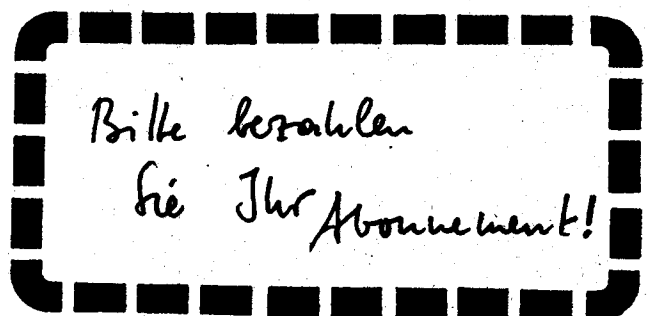 Bitte bezahlen
Sie Ihr Abonnement!